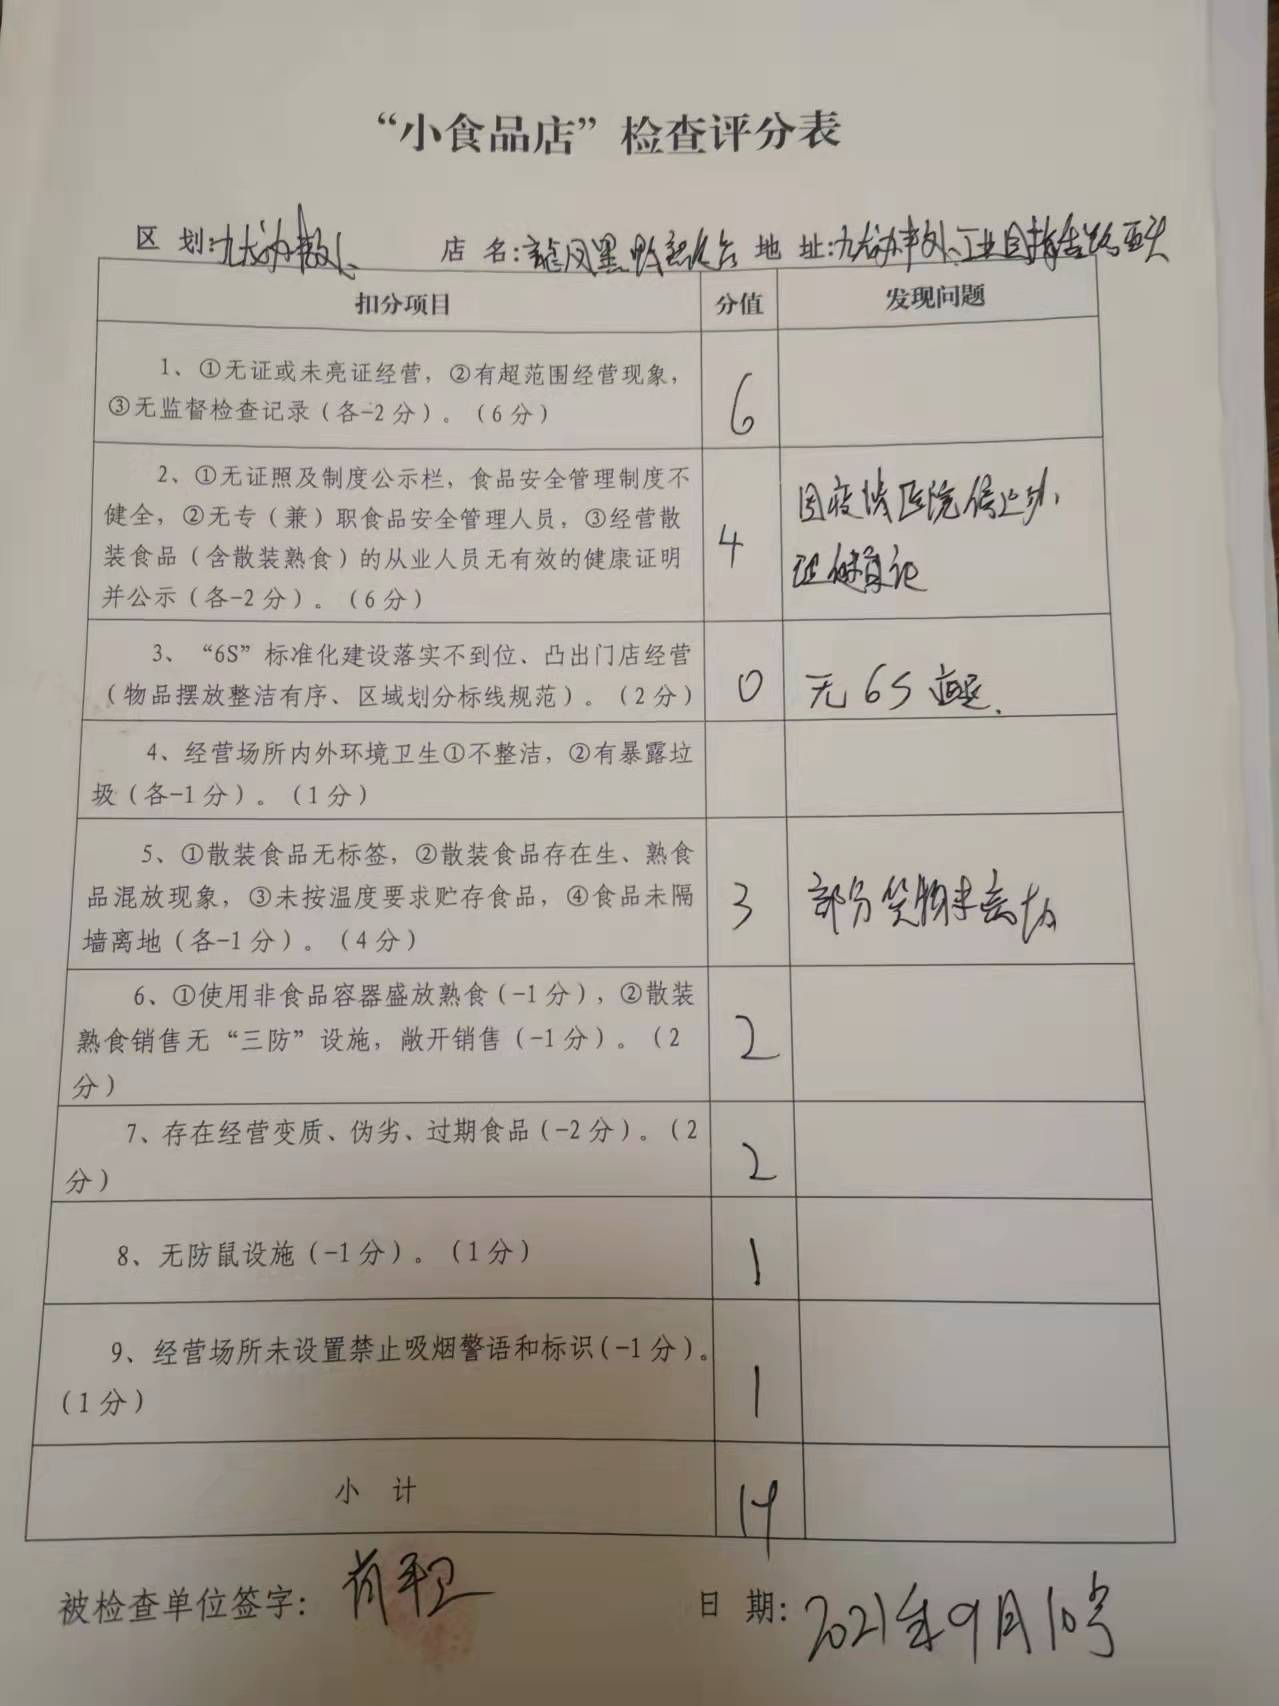 “小食品店”检查评分表
区 划:九龙办事处 店 名: 地 址:九龙办事处工业园
扣分项目 分值 发现问题
1、①无证或未亮证经营，②有超范围经营现象，
③无监督检查记录（各-2分）。（6分）
6
2、①无证照及制度公示栏，食品安全管理制度不
健全，②无专（兼）职食品安全管理人员，③经营散
装食品（含散装熟食）的从业人员无有效的健康证明
并公示（各-2分）。（6分）
4
因疫情医院停止办
理健康证
3、“6S”标准化建设落实不到位、凸出门店经营
（物品摆放整洁有序、区域划分标线规范）。（2分）
0
无6S
4、经营场所内外环境卫生①不整洁，②有暴露垃
圾（各-1分）。（1分）
5、①散装食品无标签，②散装食品存在生、熟食
品混放现象，③未按温度要求贮存食品，④食品未隔
墙离地（各-1分）。（4分）
3
部分货物未离地
6、①使用非食品容器盛放熟食（-1分），②散装
熟食销售无“三防”设施，敞开销售（-1分）。（2
分）
2
7、存在经营变质、伪劣、过期食品（-2分）。（2
分）
2
8、无防鼠设施（-1分）。（1分）
1
9、经营场所未设置禁止吸烟警语和标识（-1分）。
（1分）
1
小 计
被检查单位签字： 日 期：2021年9月10号